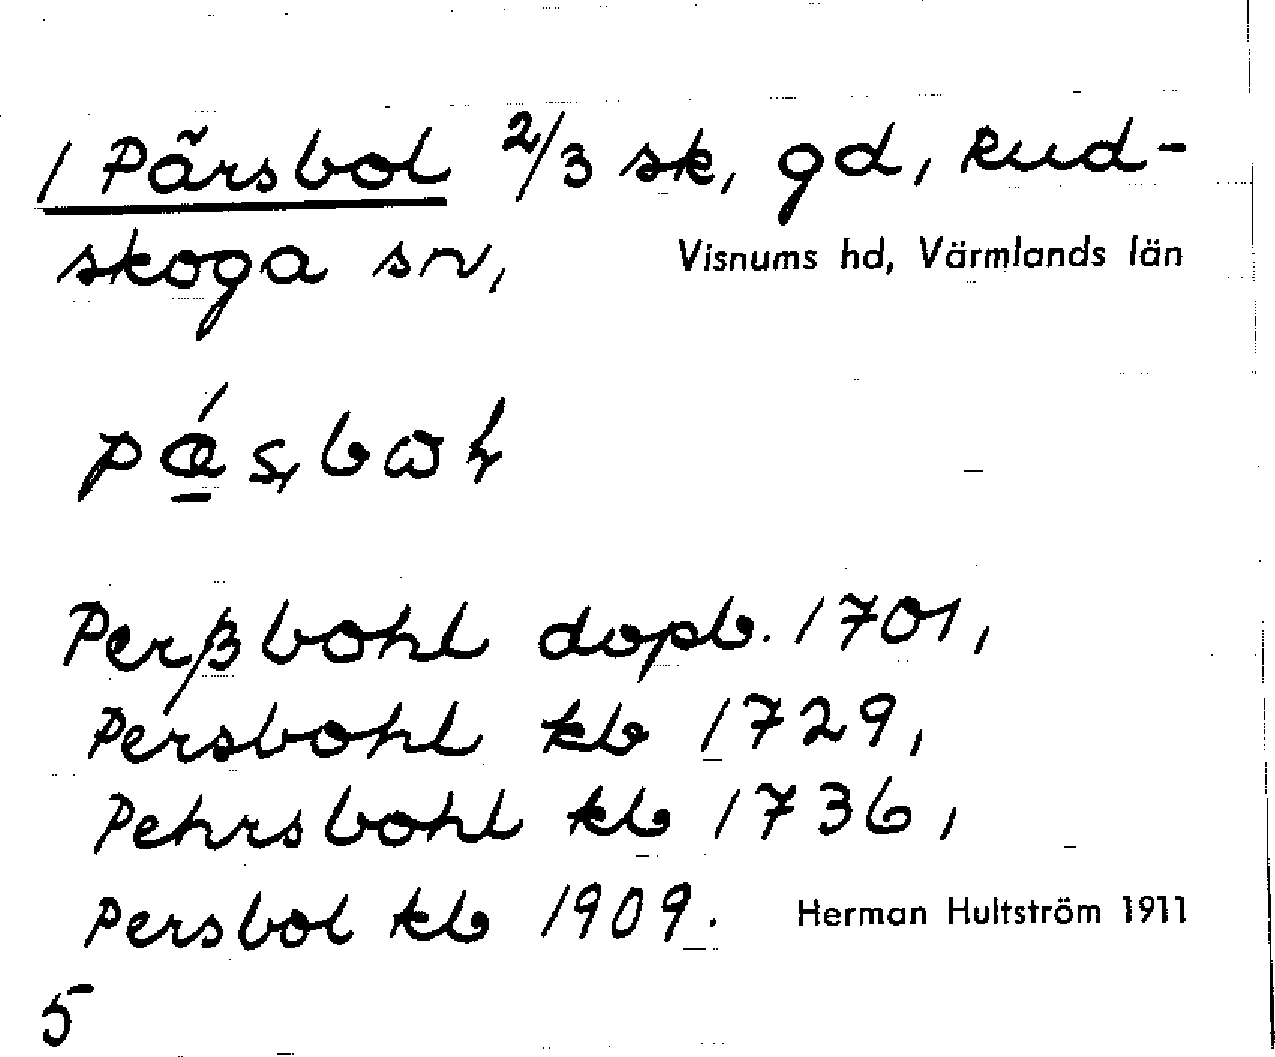 1 Pärsbol 2/3 sk, gd, Rud-
skoga sn, Visnums hd, Värmlands län
Perßbohl dopb. 1701,
Persbohl kb 1729,
Pehrsbohl kb 1736,
Persbol kb 1909. Herman Hultström 1911
5